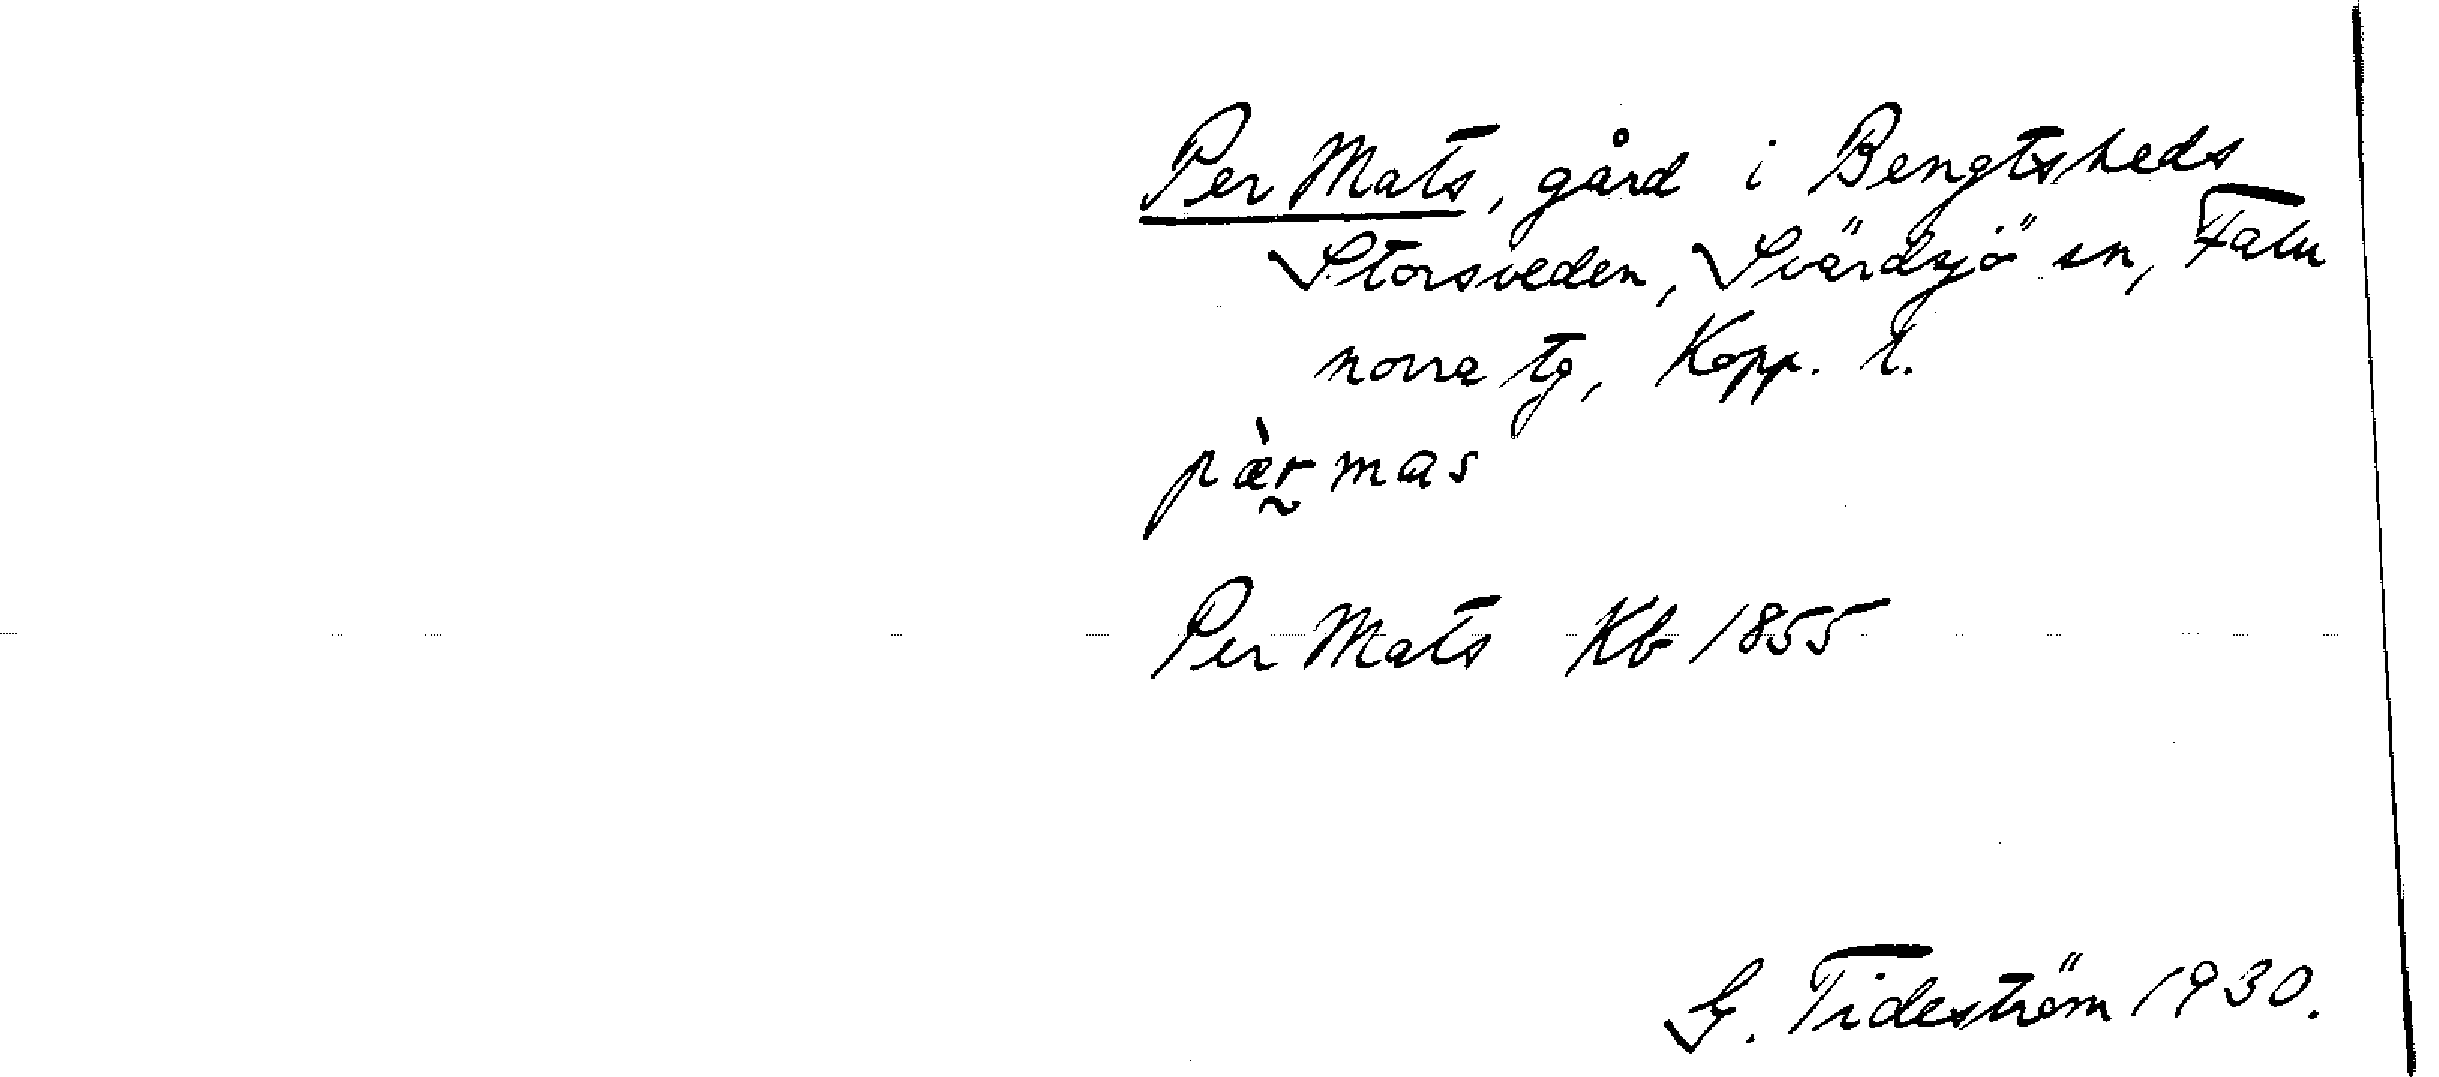 Per Mats, gård i Bengtsheds
Storsveden, Svärdsjö sn, Falu
norra tg, Kopp. l.
pæ̀r̰mas
Per Mats Kb 1855
G. Tideström 1930.